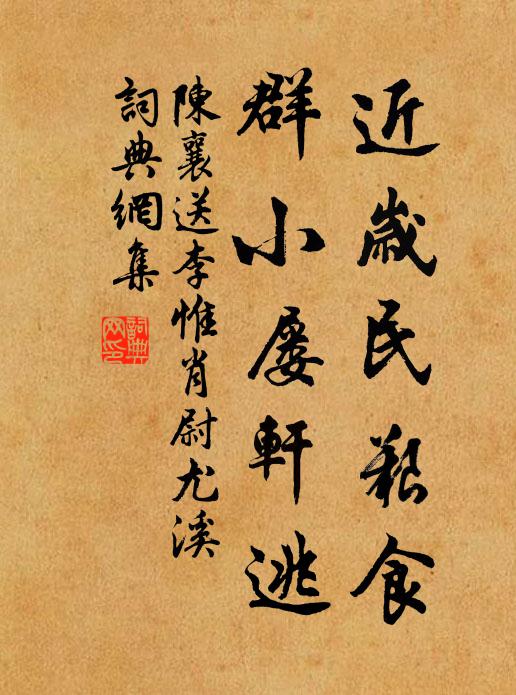 近歲民艱食
群小屢軒逃
陳襄送李惟肖尉尤溪
詞典網集
詞典
网印